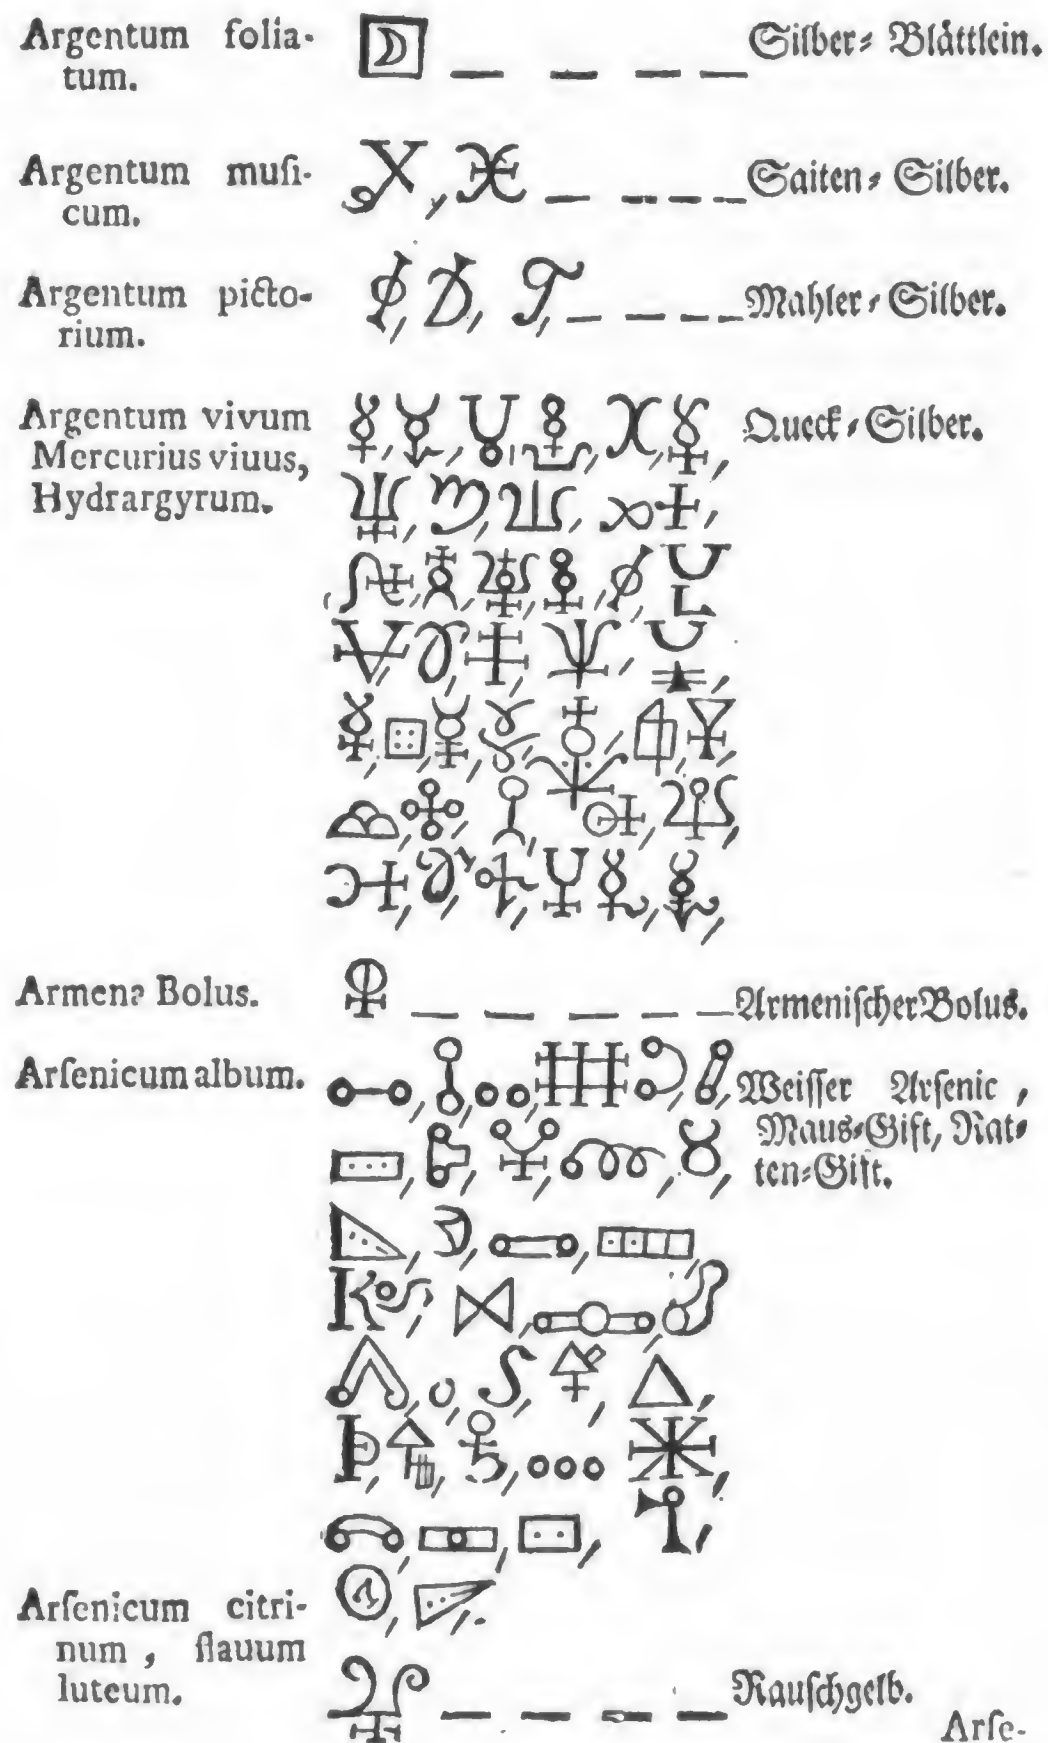 Argentum folia- Silber⸗ Blättlein.
tum.
Argentum muſi- Saiten⸗ Silber.
cum.
Argentum picto- Mahler⸗ Silber.
rium.
Argentum vivum Queck⸗Silber.
Mercurius viuus,
Hydrargyrum.
Armen? Bolus. Armeniſcher Bolus.
Arſenicum album. Weiſſer Arſenic ,
Maus⸗Gift, Rat⸗
ten⸗Gift.
Arſenicum citri-
num , flauum
luteum. Rauſchgelb.
Arſe-